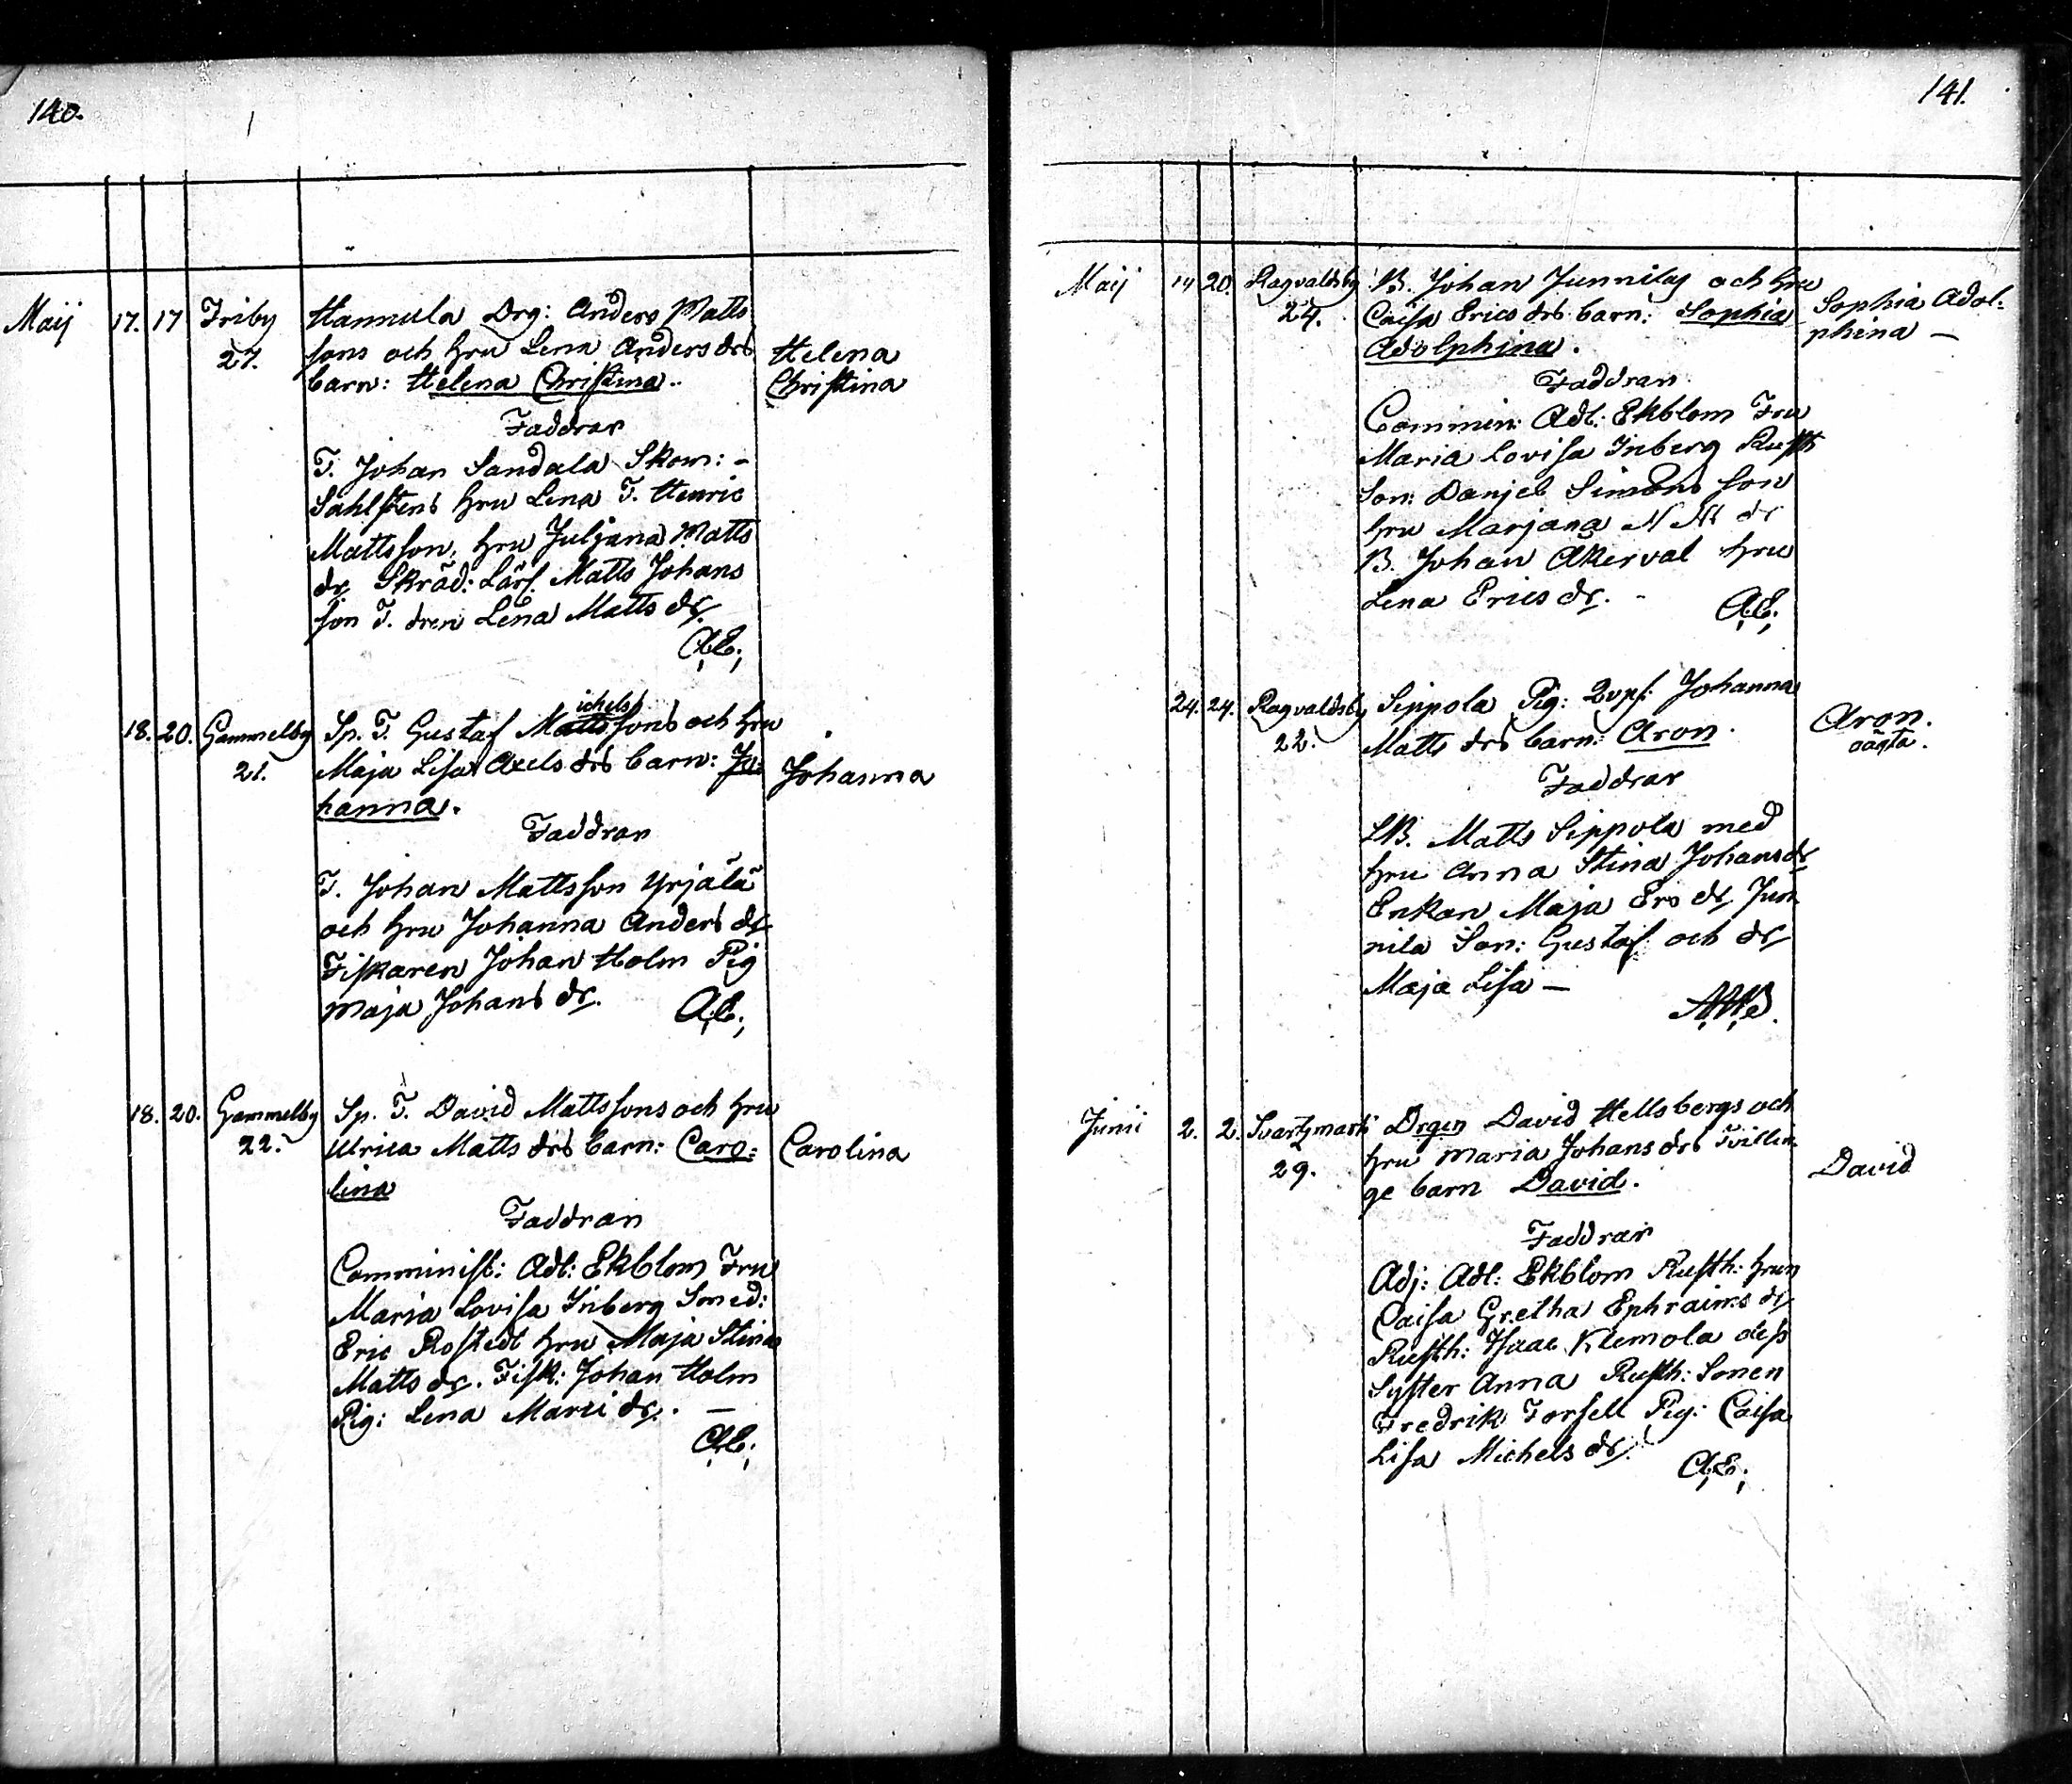 140.
Maij 17. 17 Friby Hannula Drg: Anders Matts
27. sons och hru Lena Anders drs Helena
barn: Helena Christina. Christina
Faddrar
T. Johan Sandala Skom: -
Sahlstens hru Lena T. Henric
Mattsson, hru Juljana Matts
dr. Skräd: Lärl. Matts Johans
son T. dren Lena Matts dr.
A.E.
ichels
18. 20. Gammelby Sp. T. Gustaf Mattssons och hru
21. Maja Lisa Axels drs barn: Jo= Johanna
hanna.
Faddran
T. Johan Mattsson Yrjälä
och hru Johanna Anders dr.
Fiskaren Johan Holm Pig
Maja Johans dr. A.E.
18. 20. Gammelby Sp. T. David Mattssons och hru
22. Ulrica Matts drs barn: Caro= Carolina
lina
Faddran
Comminist: Adl: Ekblom Fru
Maria Lovisa Inberg Smed:
Eric Rostedt hru Maja Stina
Matts dr. Fisk: Johan Holm
Pig: Lena Marci dr. —
A.E.
141.
Maij 14 20. Ragvaldsby B. Johan Junnilas och hru
24. Caisa Erics drs barn: Sophia Sophia Adol-
Adolphina. phina —
Faddran
Commin: Adl: Ekblom Fru
Maria Lovisa Inberg Rusth
Son: Danjel Simons son
hru Marjana M Ms dr
B. Johan Åkerval hru
Lena Erics dr. - A.E.
24. 24. Ragvaldsby Sippola Pig: Qvpf: Johanna
22. Matts drs barn: Aron. Aron.
oägta.
Faddrar
LB. Matts Sippola med
hru Anna Stina Johans dr
Enkan Maja Ers dr. Jun
nila Son: Gustaf och dr.
Maja Lisa —
Junii 2. 2. Svartsmark Drgen David Hellsbergs och
29. hru Maria Johans drs Tvillin
ge barn David. David
Faddrar
Adj: Adl: Ekblom Rusth: hrun
Caisa Gretha Ephraims dr.
Rusth: Isaac Klemola dess
Syster Anna Rusth: Sonen
Fredrik Forsell Pig: Caisa
Lisa Michels dr.
A.E.